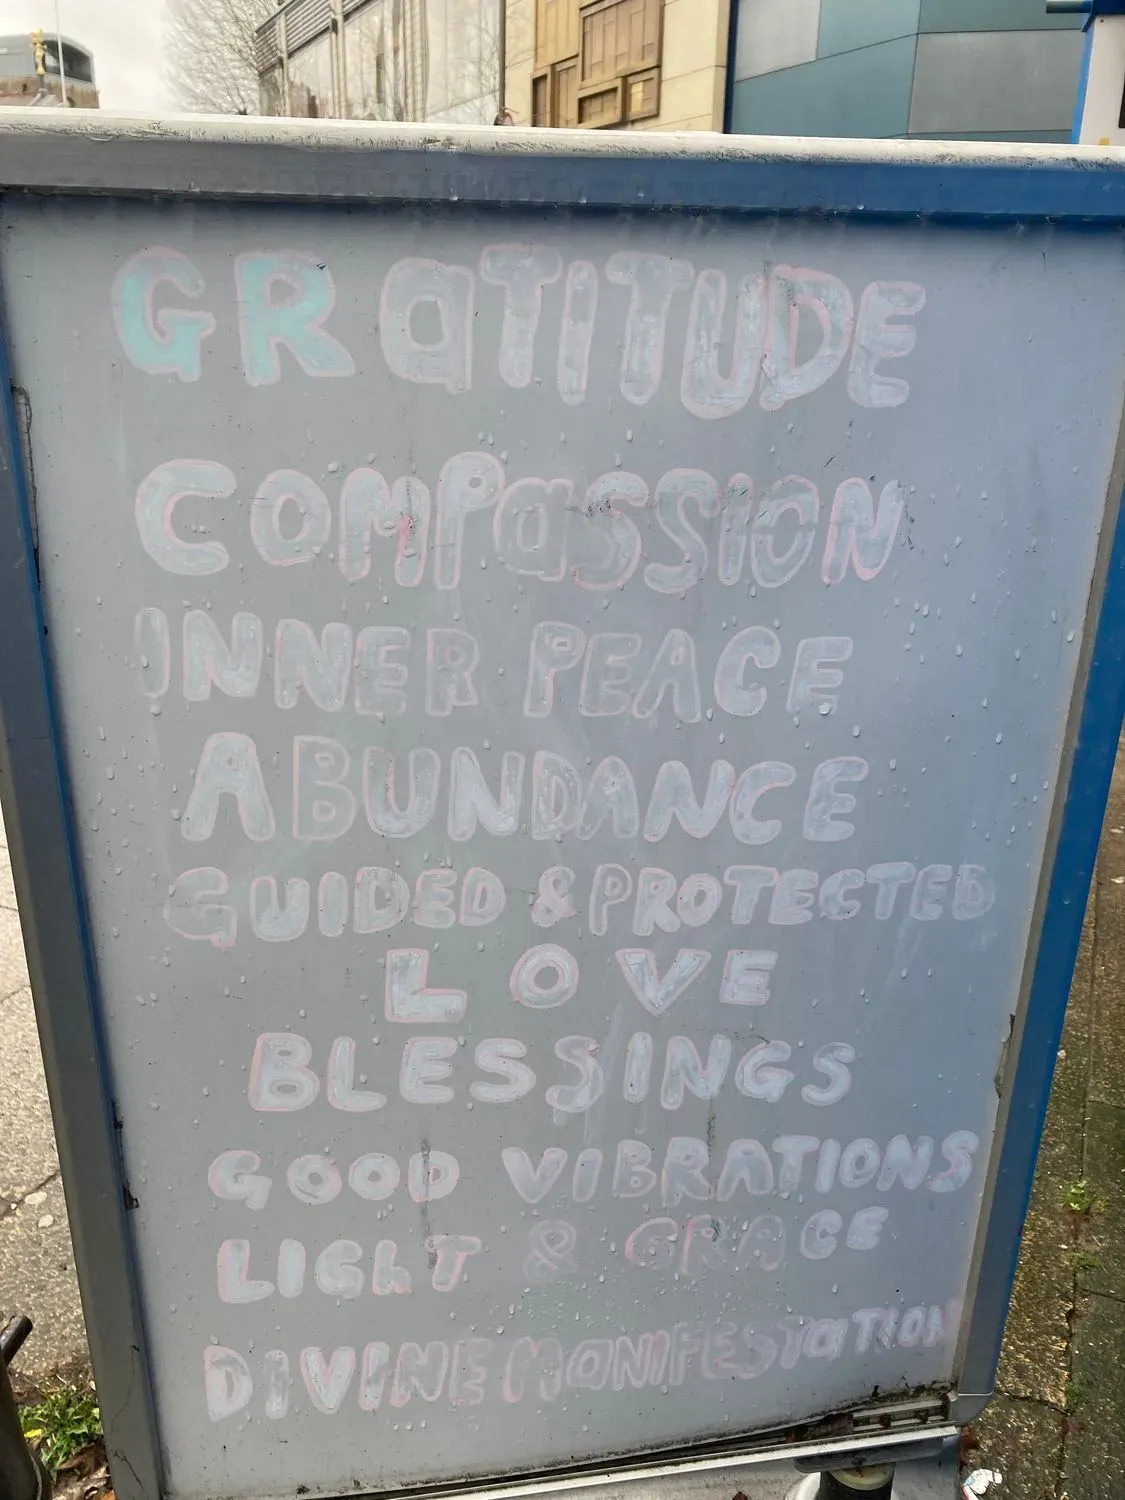 GRaTITUDE
COMPaSSION
INNER PEACE
ABUNDANCE
GUIDED & PROTECTED
LOVE
BLESSINGS
GOOD VIBRATIONS
LIGhT & GRACE
DIVINE MaNIFESTaTION